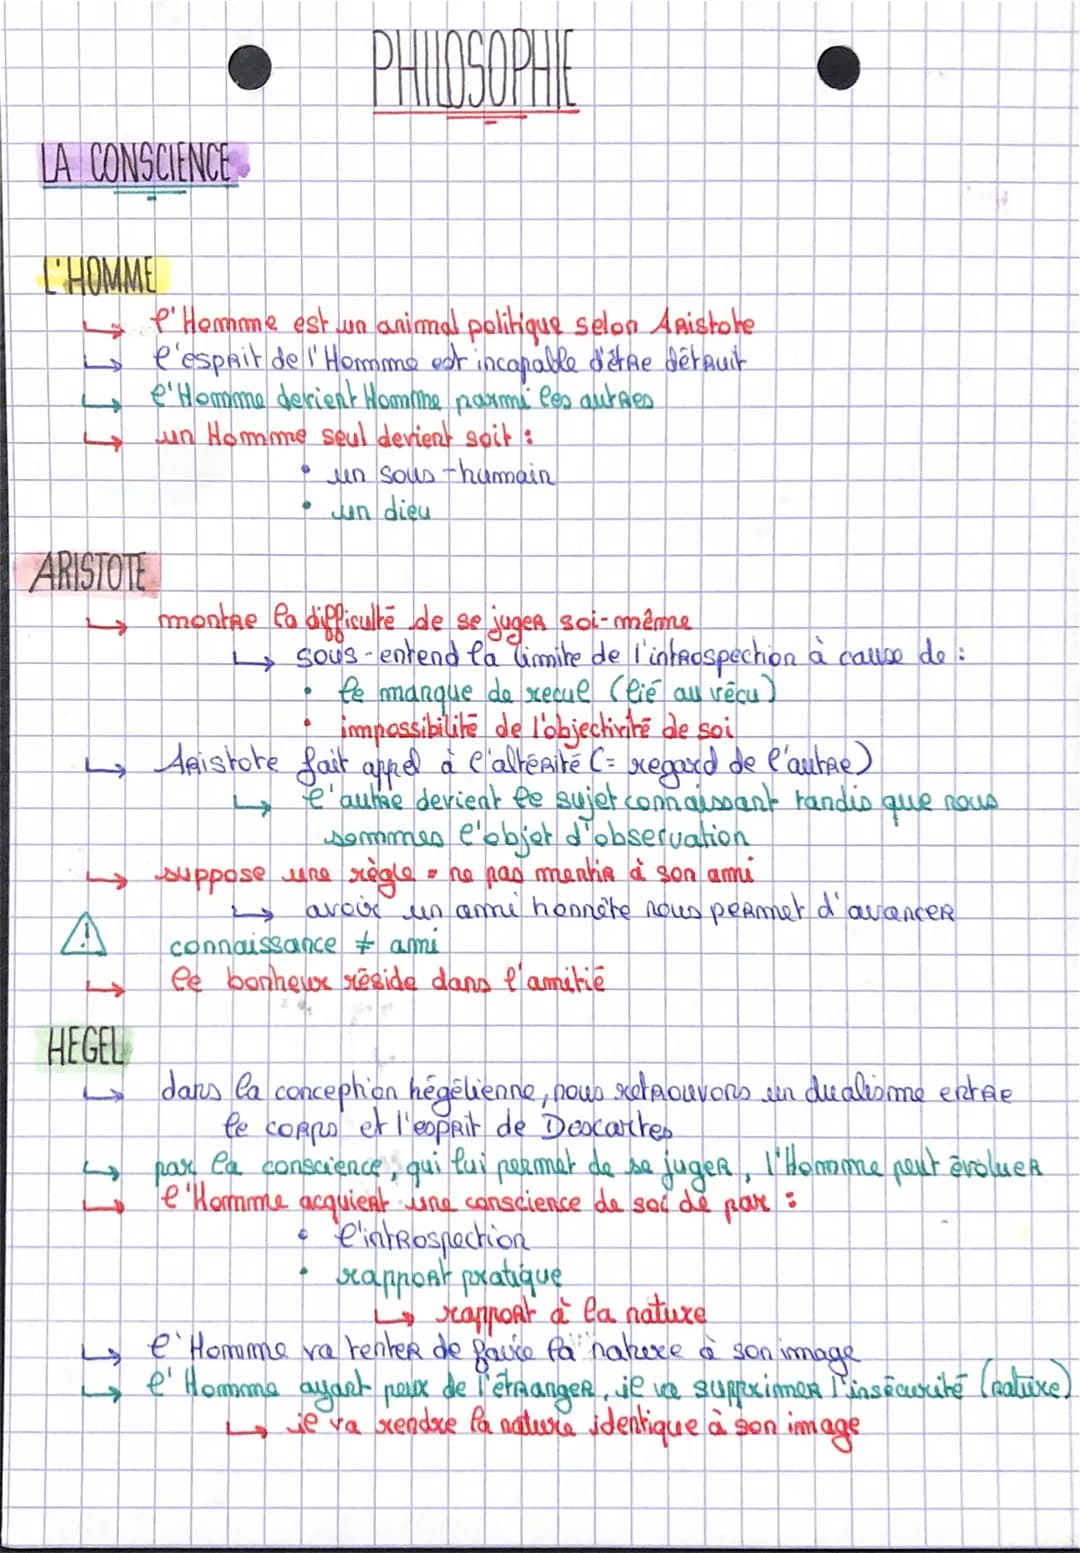 PHILOSOPHIE
LA CONSCIENCE
L'HOMME
↳ l'Homme est un animal politique selon Aristote
↳ l'esprit de l'Homme est incapable d'être détruit
↳ l'Homme devient Homme parmi les autres
↳ un Homme seul devient soit :
• un sous-humain
• un dieu
ARISTOTE
↳ montre la difficulté de se juger soi-même
↳ sous-entend la limite de l'introspection à cause de :
• le manque de recul (lié au vécu)
• impossibilité de l'objectivité de soi
↳ Aristote fait appel à l'altérité (= regard de l'autre)
↳ l'autre devient le sujet connaissant tandis que nous
sommes l'objet d'observation
↳ suppose une règle = ne pas mentir à son ami
↳ avoir un ami honnête nous permet d'avancer
⚠ connaissance ≠ ami
↳ le bonheur réside dans l'amitié
HEGEL
↳ dans la conception hégélienne, nous retrouvons un dualisme entre
le corps et l'esprit de Descartes
↳ par la conscience, qui lui permet de se juger, l'Homme peut évoluer
↳ l'Homme acquiert une conscience de soi de par :
• l'introspection
• rapport pratique
↳ rapport à la nature
↳ l'Homme va tenter de faire la nature à son image
↳ l'Homme ayant peur de l'étranger, il va supprimer l'insécurité (nature)
↳ il va rendre la nature identique à son image